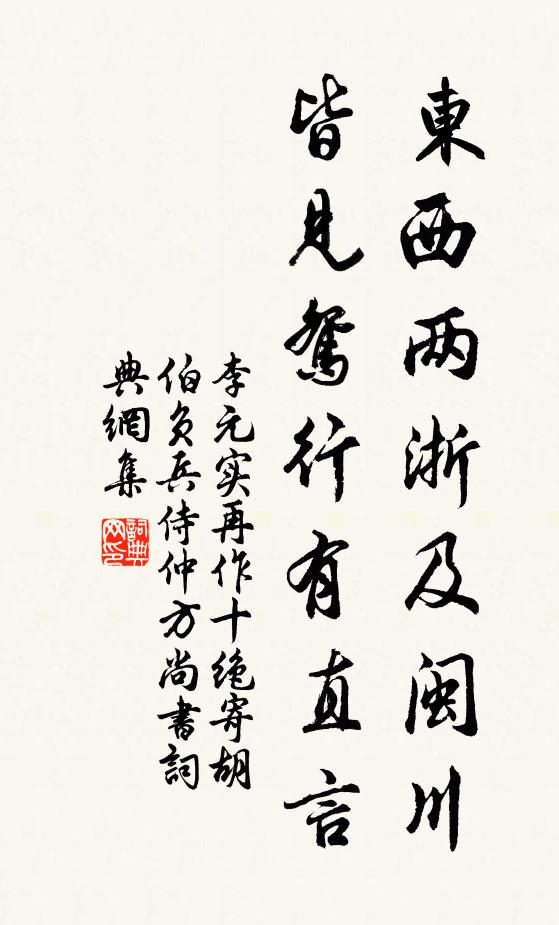 東西两浙及闽川
皆見鴛行有直言
李元实再作十绝寄胡
伯负兵侍仲方尚書詞
典網集
詞典网印